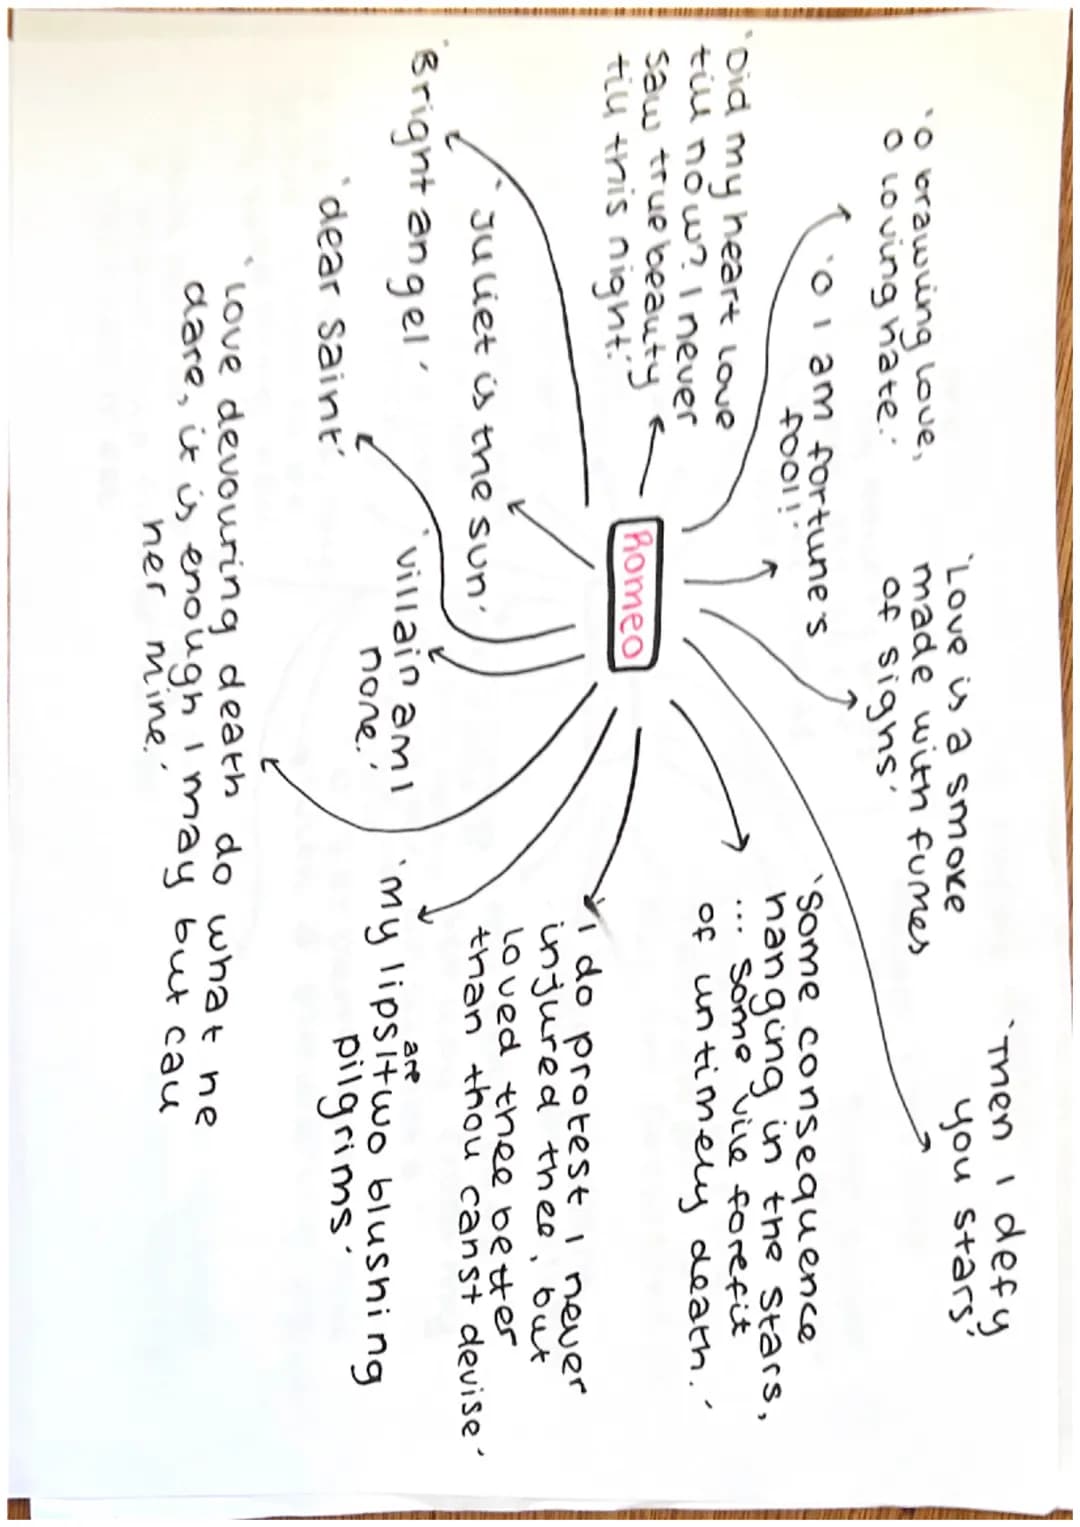 'O brawling love,
O loving hate.'
'Love is a smoke
made with fumes
of signs'
'Then I defy
you stars'
'O I am fortune's
fool!'
'Did my heart love
till now? I never
saw true beauty
till this night.'
Romeo
'Some consequence
hanging in the stars,
... some vile forefit
of untimely death.'
'I do protest I never
injured thee, but
loved thee better
than thou canst devise'
'Juliet is the sun.'
'Bright angel'
'dear saint'
'villain am I
none.'
'my lips are two blushing
pilgrims'
'Love devouring death do what he
dare, it is enough I may but cau
her mine.'